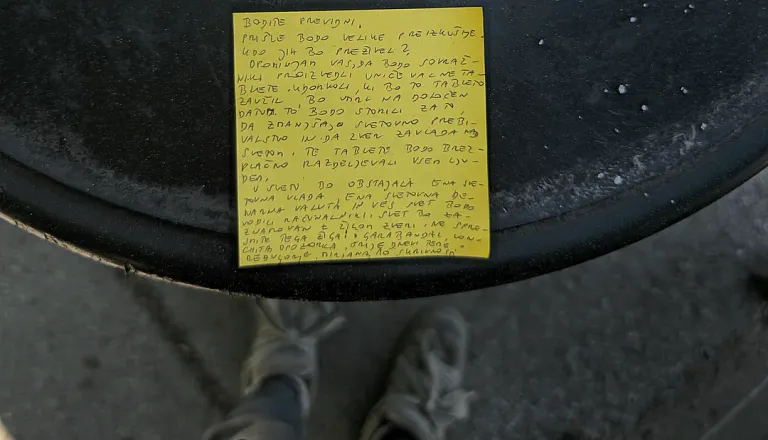 BODITE PREVIDNI.
PRIŠLE BODO VELIKE PREIZKUŠNJE.
KDO JIH BO PREŽIVEL?
OPOMINJAM VAS, DA BODO SOVRAŽ-
NIKI PROIZVEDLI UNIČEVALNE TA-
BLETE. KDORKOLI, KI BO TO TABLETO
ZAUŽIL, BO UMRL NA DOLOČEN
DATUM. TO BODO STORILI ZATO
DA ZMANJŠAJO SVETOVNO PREBI-
VALSTVO IN DA ZVER ZAVLADA
SVETOM. TE TABLETE BODO BREZ-
PLAČNO RAZDELJEVALI VSEM LJU-
DEM.
V SVETU BO OBSTAJALA ENA SVE-
TOVNA VLADA ENA SVETOVNA DE-
NARNA VALUTA IN VES SVET BODO
VODILI RAČUNALNIKI. SVET BO ZA-
ZNAMOVAN Z ŽIGOM ZVERI. NE SPRE-
JMITE TEGA ŽIGA! GARABANDAL, KON-
CHITA OPOZORILA, TRIJE DNEVI TEME.